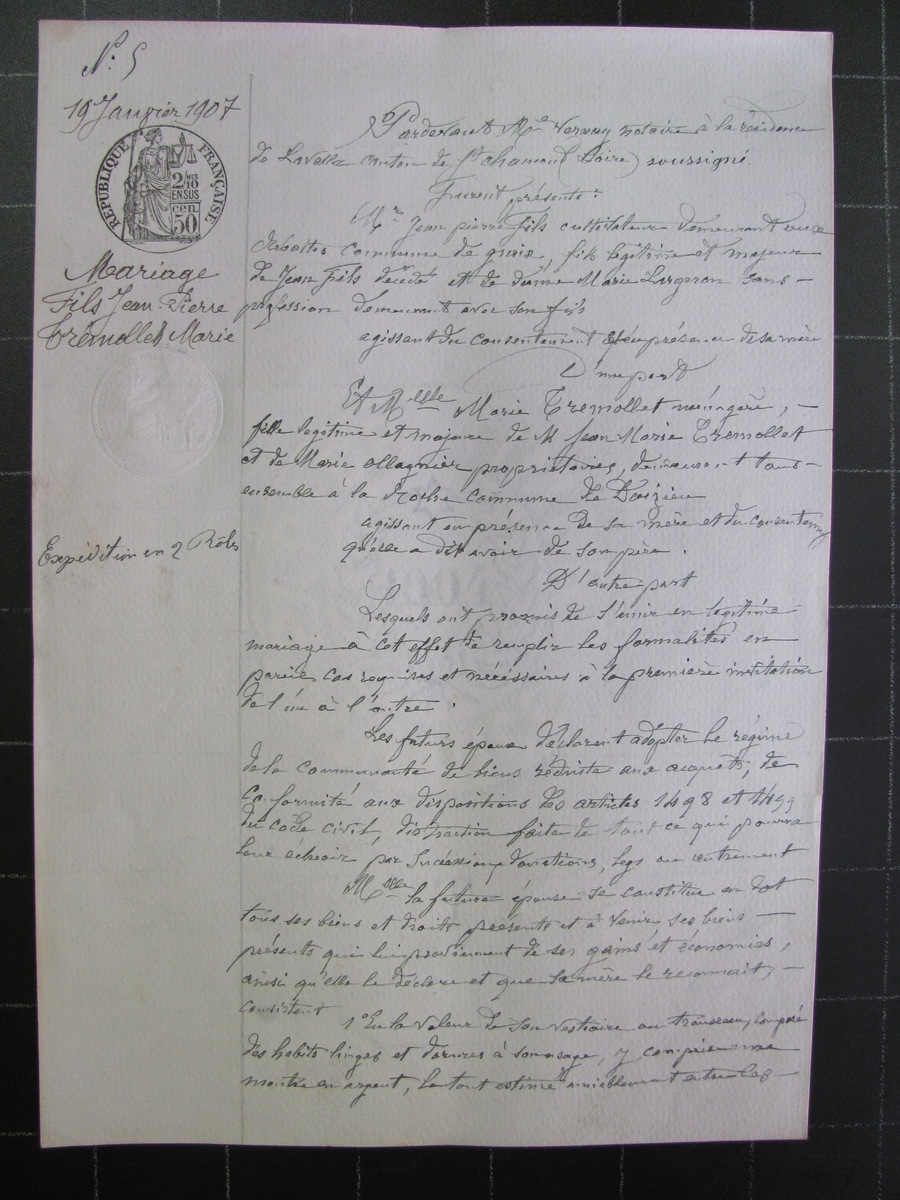 N: 5
19 Janvier 1907
RÉPUBLIQUE FRANÇAISE
2/10
EN SUS
cen.
50
Mariage
Fils Jean-Pierre
Trémollet Marie
Expédition en 2 Rôles
Pardevant Me Vernay notaire à la résidence
de Lavalla canton de St chamond (Loire) soussigné
Furent présents :
Mr Jean pierre Fils cultivateur demeurant aux
commune de , fils légitime et majeur
de Jean Fils décédé et de dame Marie Largeron sans -
profession demeurant avec son fils
agissant du consentement et en présence de sa mère
D'une part
Et Melle Marie Tremollet ménagère, -
fille légitime et majeure de M Jean Marie Tremollet
et de Marie ollagnier propriétaires, demeurant tous -
ensemble à la Roche commune de Doizieu
agissant en présence de sa mère et du consentemt
qu'elle a dit avoir de son père .
D'autre part
Lesquels ont promis de s'unir en légitime
mariage à cet effet de remplir les formalités en
pareil cas requises et nécessaires à la première
de l'un à l'autre .
Les futurs époux déclarent adopter le régime
de la communauté de biens réduite aux acquets, de
conformité aux dispositions des articles 1498 et 1499
du code civil, distraction faite de tout ce qui pourra
leur échoir par successions, donations, legs ou autrement
Melle la future épouse se constitue en dot
tous ses biens et droits présents et à venir ses biens -
présents qui lui proviennent de ses gains et économies,
ainsi qu'elle le déclare et que sa mère le reconnait, -
consistent
1° En la valeur de son vestiaire ou trousseau, composé
des habits linges et dorures à son usage, y compris une
montre en argent, le tout estimé amiablement entre les -